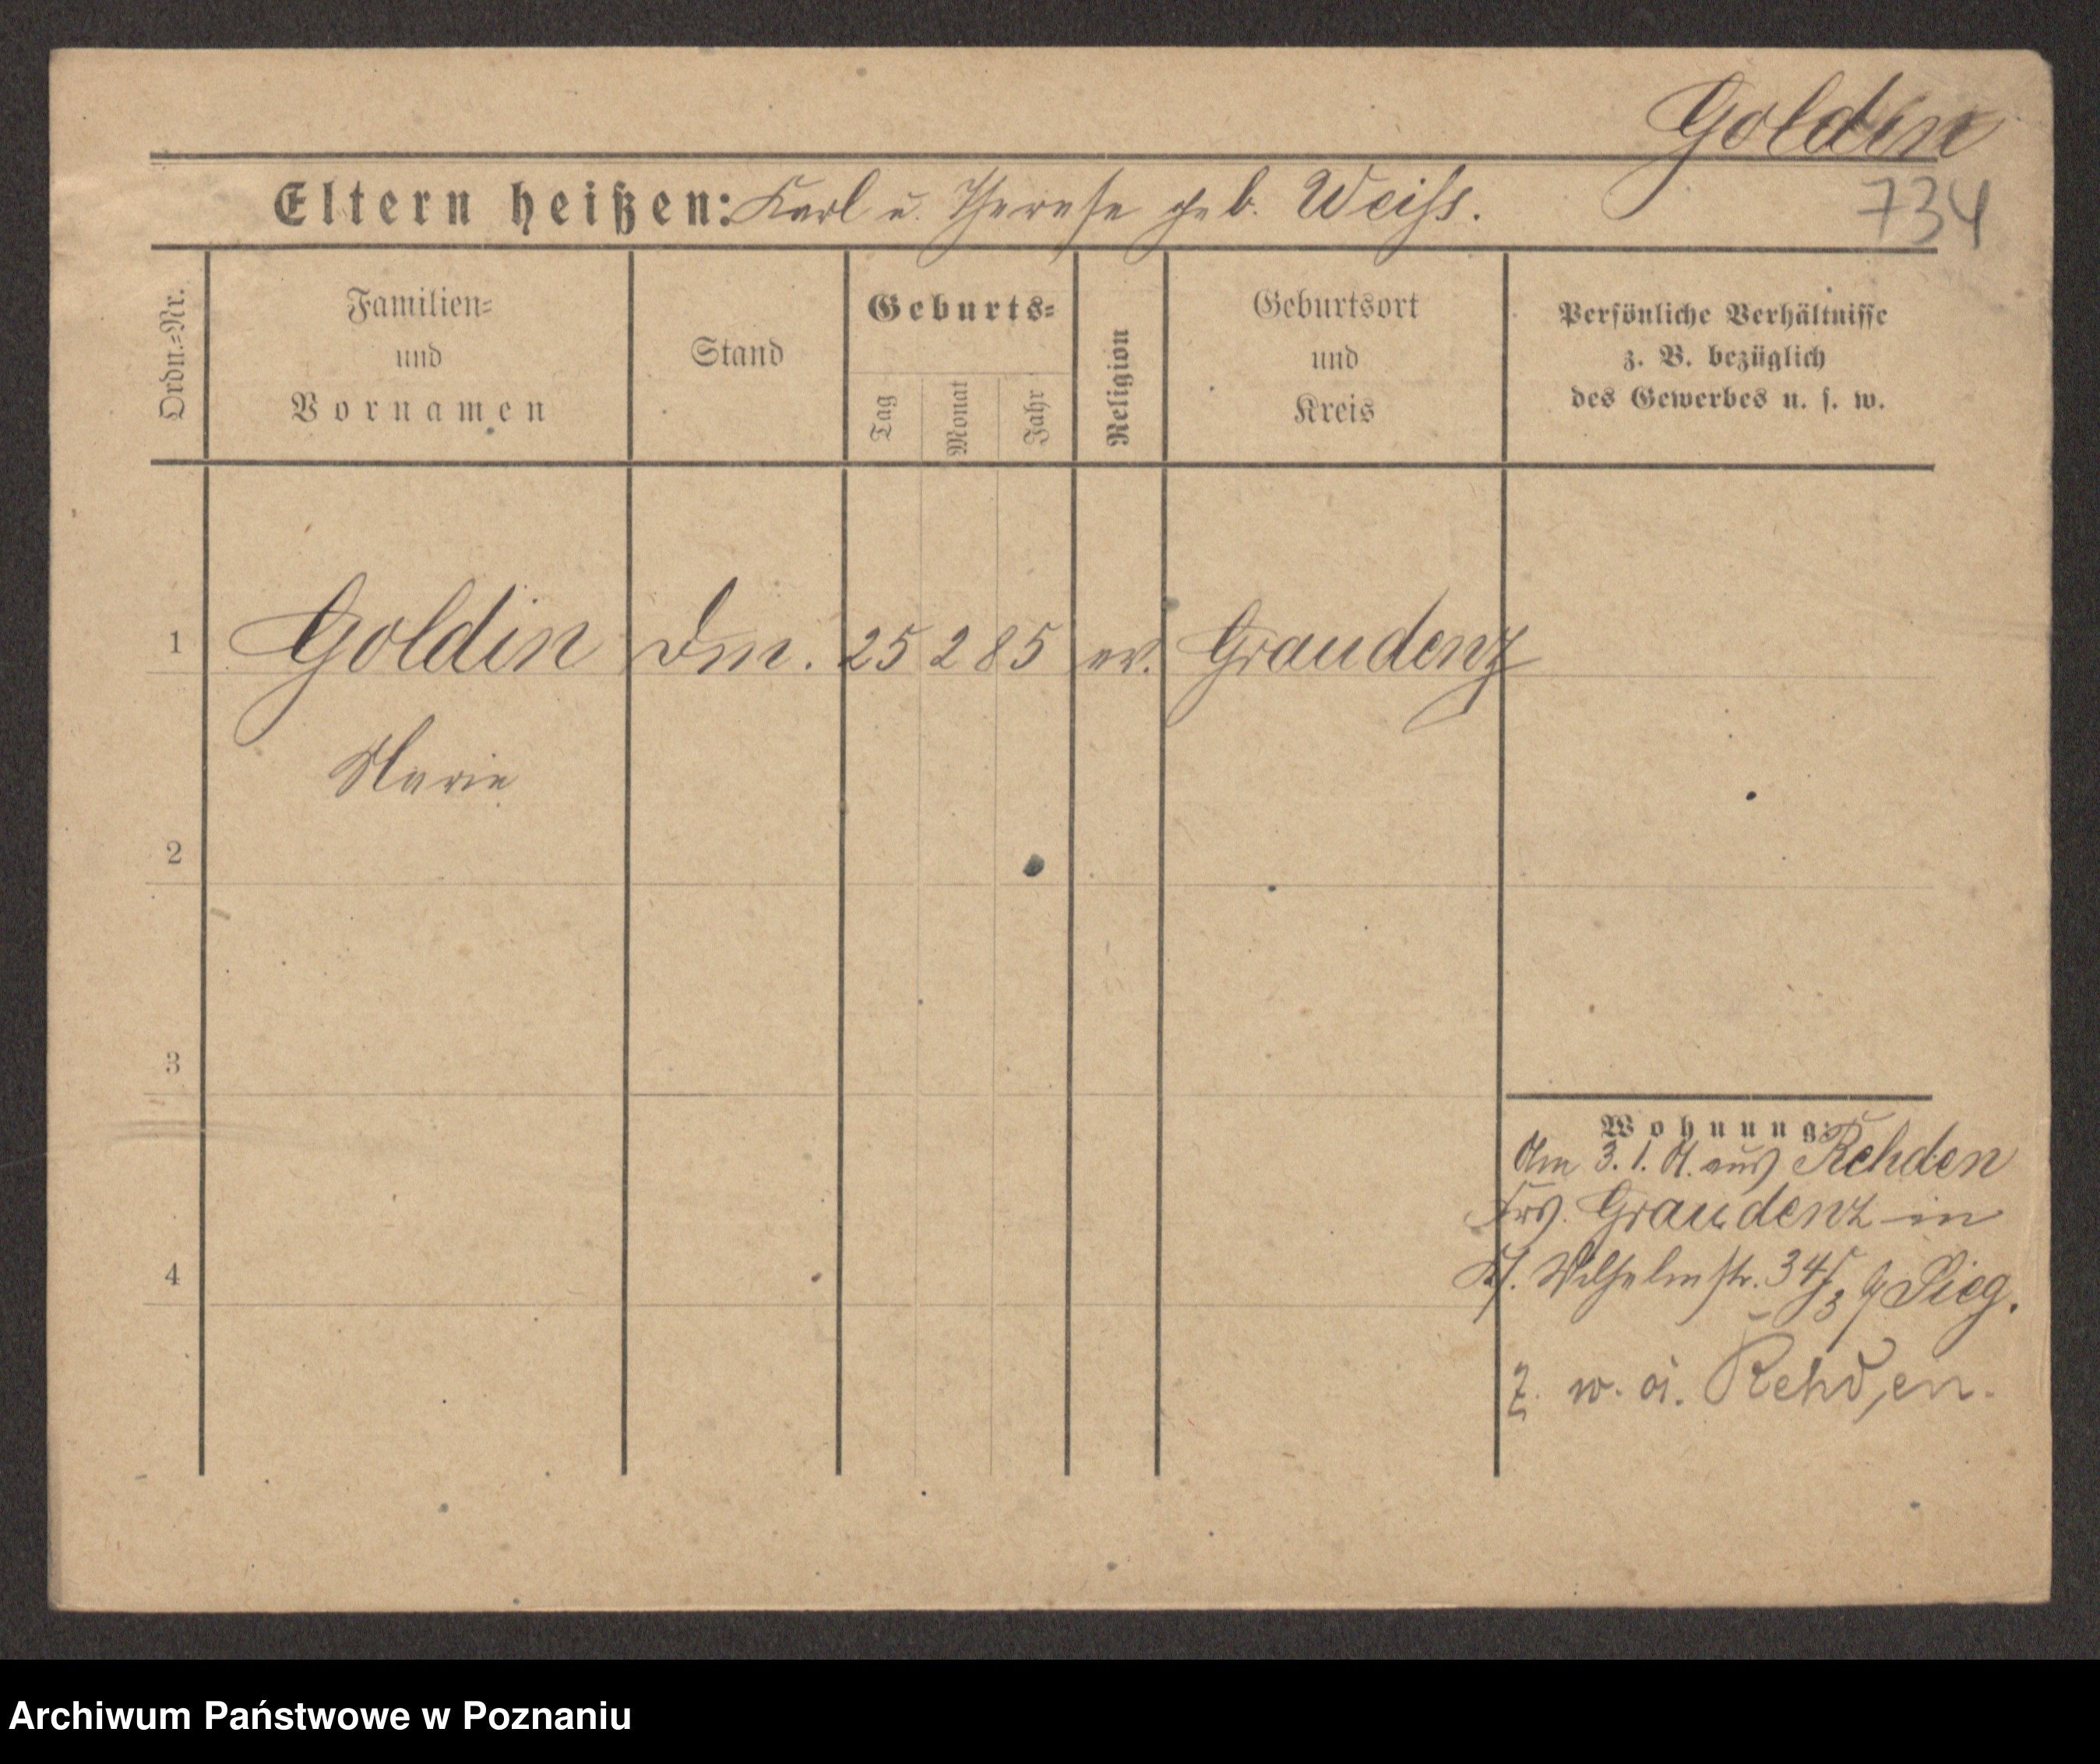 Goldin
734
Eltern heißen: Karl u. Therese geb. Weiss.
Ordn.-Nr.
Familien-
und
Vornamen
Stand
Geburts-
Tag
Monat
Jahr
Religion
Geburtsort
und
Kreis
Persönliche Verhältnisse
z. B. bezüglich
des Gewerbes u. s. w.
1 Goldin Dm. 25 2 85 ev. Graudenz
Marie
2
3
Wohnung:
Am 3. 1. 01. aus Rehden
Krs. Graudenz in
4
Wilhelmstr. 34/3 b Pieg.
z. w. a. Rehden.
Archiwum Państwowe w Poznaniu